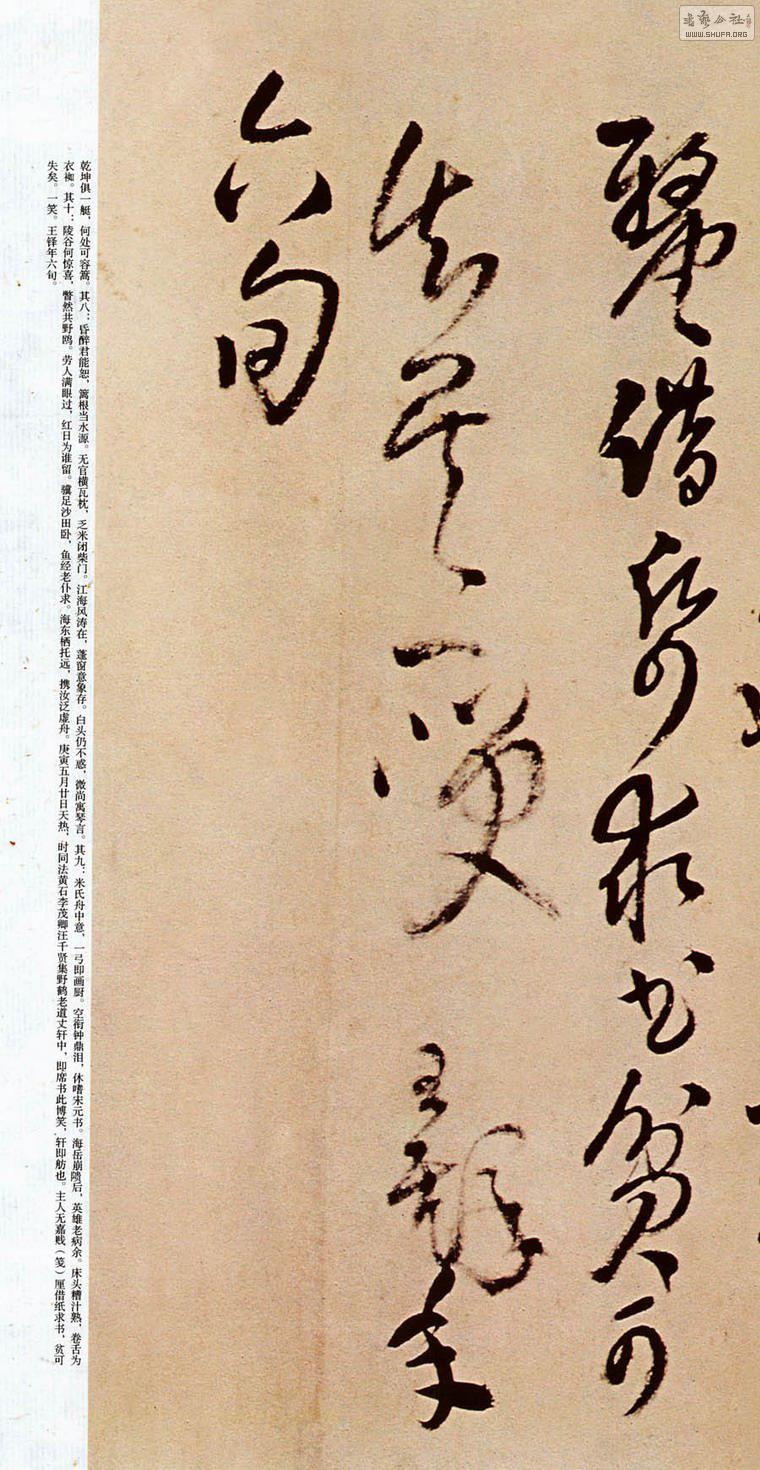 書藝公社
WWW.SHUFA.ORG
釐借帋求書貧可
失矣一笑王鐸年
六旬
乾坤俱一艇，何处可容篙。其八：昏醉君能恕，篱根当水源。无官横瓦枕，乏米闭柴门。江海风涛在，蓬窗意象存。白头仍不惑，微尚寓琴言。其九：米氏舟中意，一弓即画厨。空衔钟鼎泪，休嗜宋元书。海岳崩溃后，英雄老病余。床头糟汁熟，卷舌为
衣袽。其十：陵谷何惊喜，瞥然共野鸥。劳人满眼过，红日为谁留。骥足沙田卧，鱼经老仆求。海东栖托远，携汝泛虚舟。庚寅五月廿日天热，时同法黄石李茂卿汪千贤集野鹤老道丈轩中，即席书此博笑，轩即舫也。主人无嘉贱（笺）厘借纸求书，贫可
失矣。一笑。王铎年六旬。